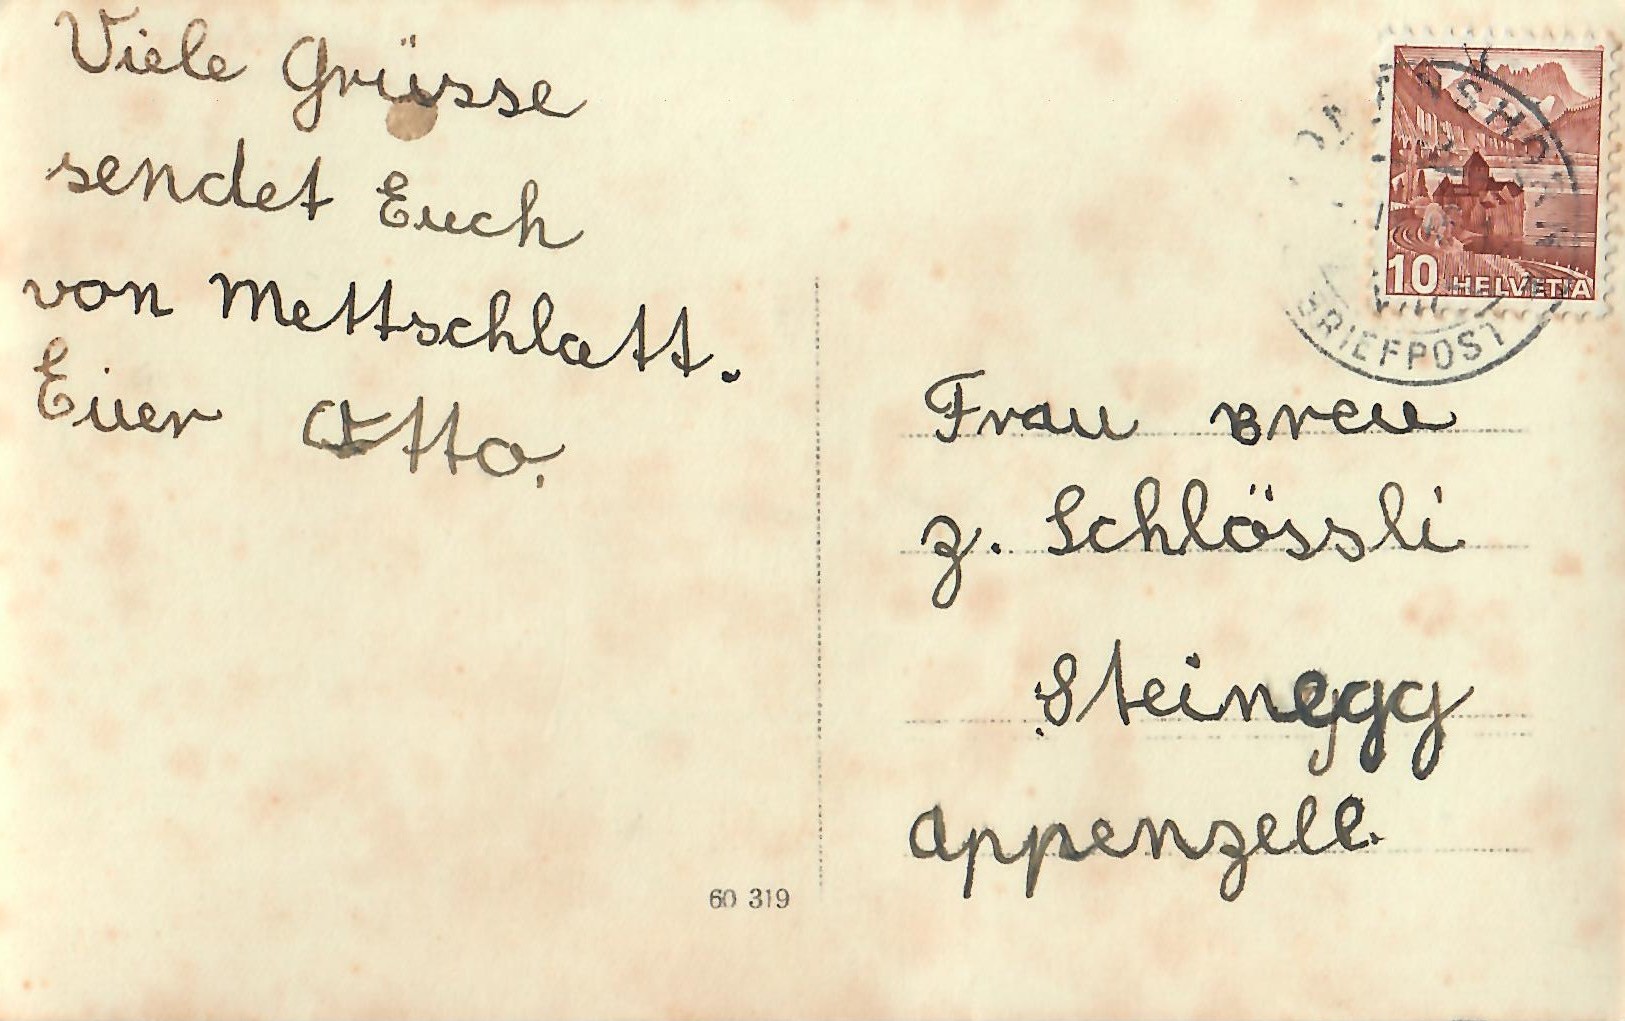 Viele Grüsse
sendet Euch
von Mettschlatt.
Euer Otto.
10 HELVETIA
BRIEFPOST
Frau Breu
z. Schlössli
Steinegg
Appenzell.
60 319